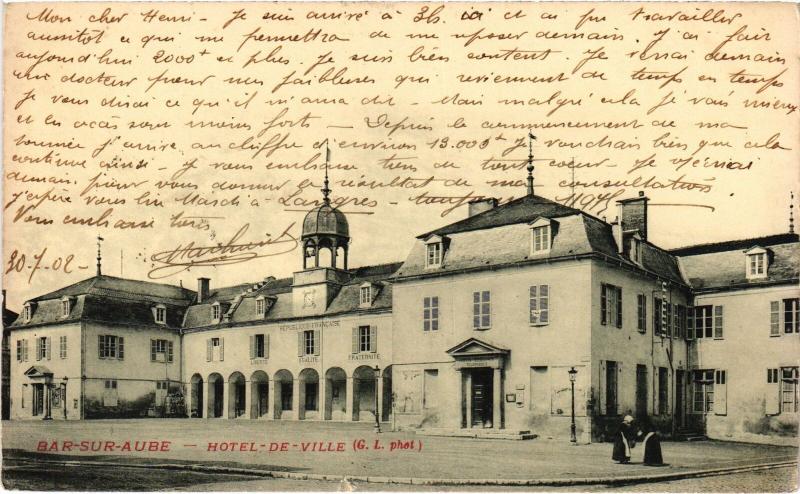 Mon cher Henri - Je suis arrivé à 3h. ici et ai pu travailler
aussitot ce qui me permettra de me reposer demain. J'ai fait
aujourd'hui 2000+ et plus. Je suis bien content. Je verrai demain
un docteur pour mes faiblesses qui reviennent de temps en temps
Je vous dirai ce qu'il m'aura dit - Mais malgré cela je vais mieux
et les accès sont moins forts - Depuis le commencement de ma
tournée j'arrive au chiffre d'environ 13.000+ Je voudrais bien que cela
continue ainsi - Je vous embrasse tous de tout coeur. Je
demain pour vous donner le résultat de ma consultation
j'espère vous lire Mardi à Langres -
Vous embrasse tous
20-7-02 -
REPUBLIQUE FRANÇAISE
LIBERTÉ EGALITÉ FRATERNITÉ
BAR-SUR-AUBE - HOTEL-DE-VILLE (G. L. phot)